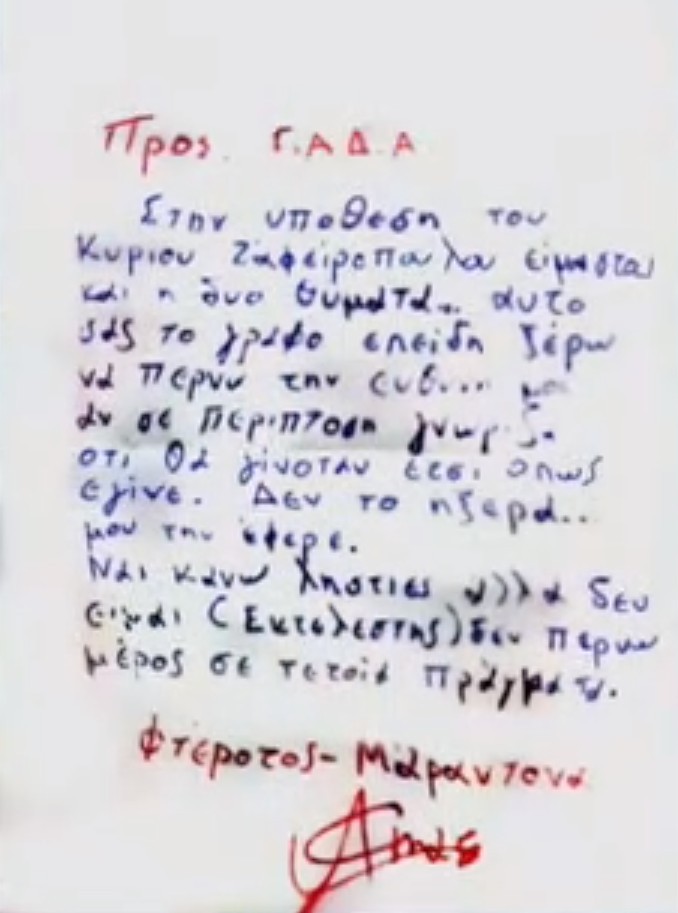 Προς Γ.Α.Δ.Α
Στην υποθεση του
Κυριου Ζαφειροπουλου είμασται
και η δυο θυματα.. αυτο
σας το γράφο επείδη ξέρω
να περνω την ευθυ...
αν σε περιπτοση γνωριζα
οτι θα γίνοταν ετσι οπως
εγινε. Δεν το ηξερα..
μου την έφερε.
Ναι κανω ληστιες αλλα δεν
ειμαι (Εκτελεστης) δεν περνω
μέρος σε τετοια πράγματα.
Φτέροτος - Μάραντονα